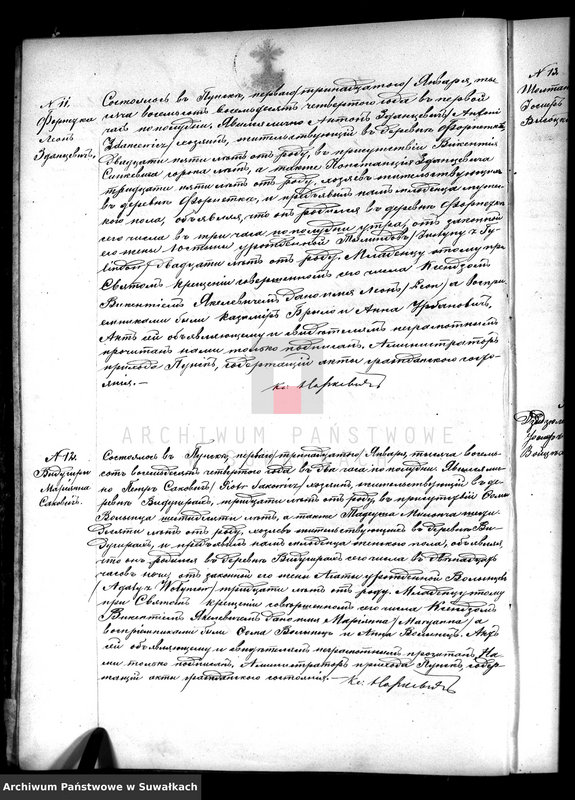 N 11.
Форнетка
Леонъ
Зданцевичъ,
Состоялось въ Пунскѣ, перваго /тринадцатаго/ Января, ты-
сяча восемьсотъ восемьдесятъ четвертаго года въ первой
часъ по полудни. Явился лично Антонъ Зданцевичъ /Antoni
Zdancewicz/ хозяинъ, жительствующій въ деревнѣ Форнетка,
Двадцати пяти лѣтъ отъ роду, въ присутствіи Викентія
сорока лѣтъ, а также Константія Зданцевича
тридцати пяти лѣтъ отъ роду, хозяевъ жительствующихъ
въ деревнѣ Форнетка, и предъявилъ намъ младенца муже-
скаго пола, объявляя, что онъ родился въ деревнѣ Форнетка
сего числа въ три часа по полудни утра, отъ законной
его жены урожденной
двадцати лѣтъ отъ роду. Младенцу этому при
Святомъ крещеніи совершенномъ сего числа Ксендзомъ
Викентіемъ Якелевичемъ дано имя Леонъ /Leon/ а воспрі-
емниками были Казиміръ Брыло и Анна Урбановичъ,
Актъ сей объявляющему и свидѣтелямъ неграмотнымъ
прочитанъ нами только подписанъ, Администраторъ
прихода Пунскъ, содержащій акты гражданскаго состо-
янія.—
Кс: Наркевичъ
N 12.
Видугиры
Маріяна
Саковичъ.
Состоялось въ Пунскѣ, перваго /тринадцатаго/ Января, тысяча восемь-
сотъ восемьдесятъ четвертаго года въ два часа по полудни. Явился лич-
но Петръ Саковичъ /Piotr Sakowicz/ хозяинъ, жительствующій въ де-
ревнѣ Видугирахъ, тридцати лѣтъ отъ роду, въ присутствіи Симы
Волынца шестидесяти лѣтъ, а также Тадеуша шести-
десяти лѣтъ отъ роду, хозяевъ жительствующихъ въ деревнѣ Ви-
дугирахъ, и предъявилъ намъ младенца женскаго пола, объявляя,
что онъ родился въ деревнѣ Видугирахъ сего числа въ двѣнадцать
часовъ ночи, отъ законной его жены Агаты урожденной Волынецъ
/Agaty z Wołyncow/ тридцати лѣтъ отъ роду. Младенцу этому
при Святомъ крещеніи совершенномъ сего числа Ксендзомъ
Викентіемъ Якелевичемъ дано имя Маріяна /Maryanna/ а
воспріемниками были Сима Волынецъ и Анна Волынецъ. Актъ
сей объявляющему и свидѣтелямъ неграмотнымъ прочитанъ, На-
ми только подписанъ, Администраторъ прихода Пунскъ, содер-
жащій акты гражданскаго состоянія.—
Кс: Наркевичъ
N 13.
ARCHIWUM PAŃSTWOWE
Archiwum Państwowe w Suwałkach